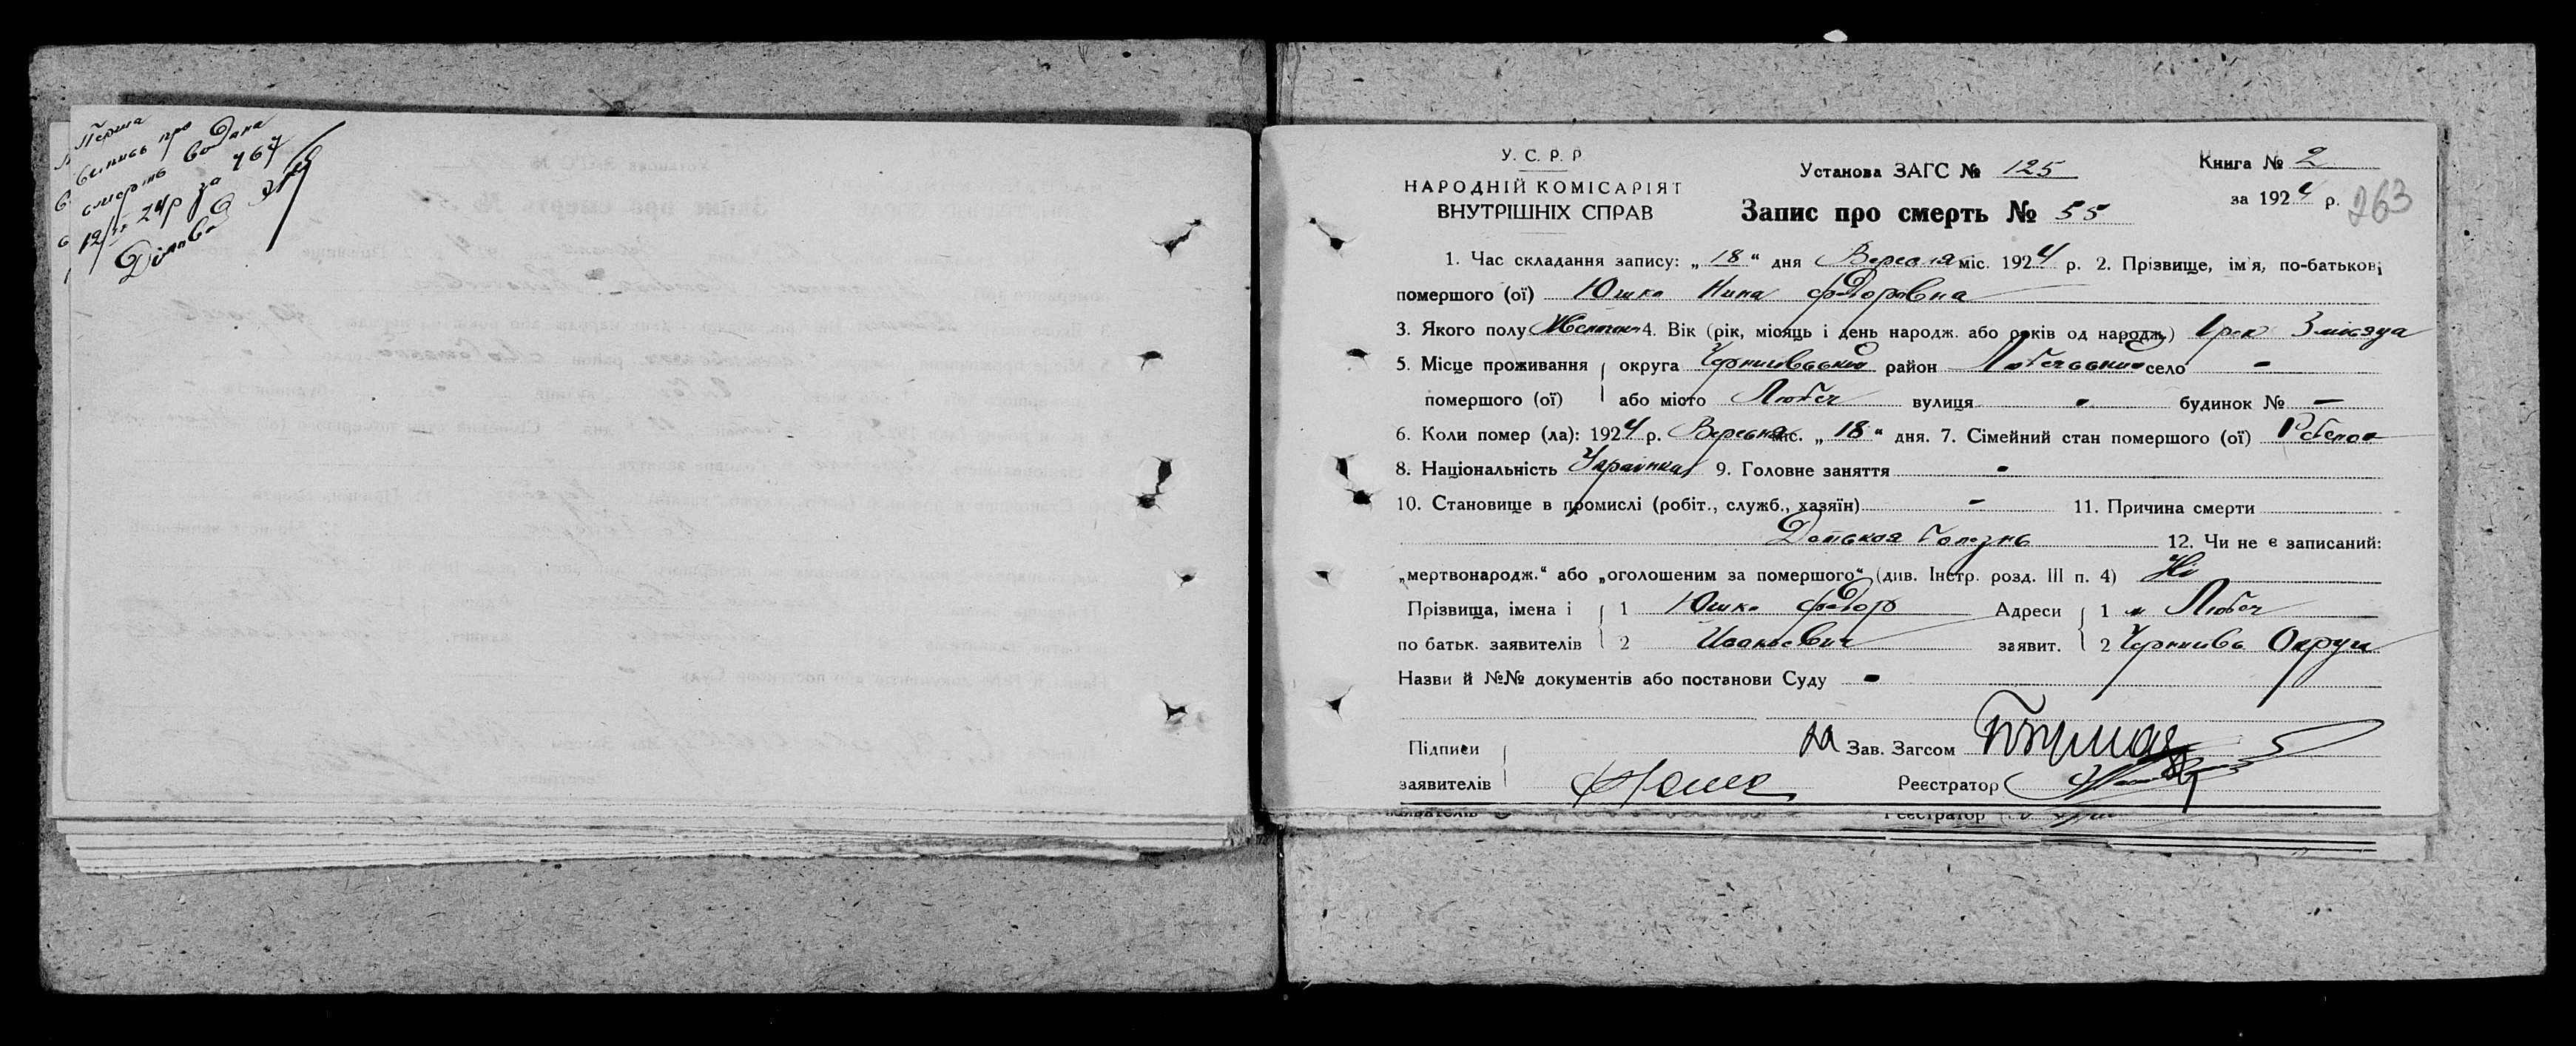 Перша
випись про
смерть видана
12/ІХ 24р за 767
Діловод
У. С. Р. Р
НАРОДНІЙ КОМІСАРІЯТ
ВНУТРІШНІХ СПРАВ
Установа ЗАГС № 125
Запис про смерть № 55
Книга № 2
за 1924 р.
263
1. Час складання запису: „ 18 “ дня Вересня міс. 1924 р. 2. Прізвище, ім'я, по-батькові
помершого (ої) Юшко Нина Федоровна
3. Якого полу 4. Вік (рік, місяць і день народж. або років од народж.) 1 рок 3 місяца
5. Місце проживання округа Чернигівський район Любечський село -
помершого (ої) або місто Любеч вулиця - будинок № -
6. Коли помер (ла): 1924 р. Вересня міс. „ 18 “ дня. 7. Сімейний стан помершого (ої)
8. Національність Українка 9. Головне заняття -
10. Становище в промислі (робіт., служб., хазяїн) - 11. Причина смерти
Детская болезнь 12. Чи не є записаний:
„мертвонародж.“ або „оголошеним за помершого“ (див. Інстр. розд. III п. 4) Ні
Прізвища, імена і 1 Юшко Федор Адреси 1 м Любеч
по батьк. заявителів 2 Иванович заявит. 2 Чернигів Округи
Назви й №№ документів або постанови Суду -
Підписи за Зав. Загсом
заявителів Юшко Реєстратор
заявителів Реєстратор